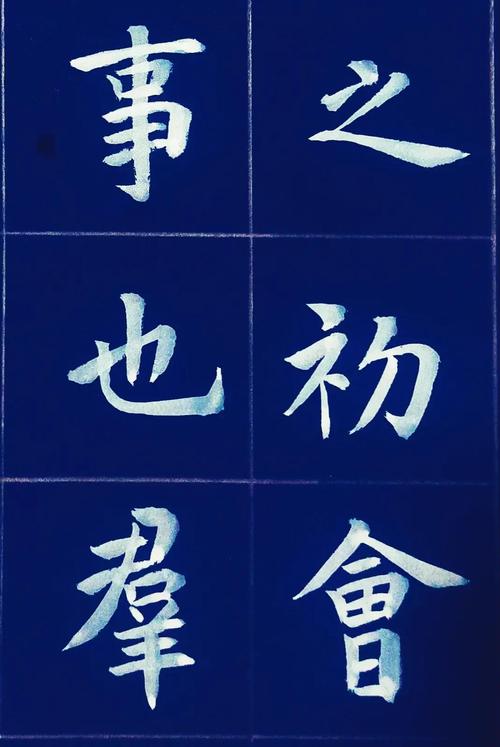 之初會
事也羣